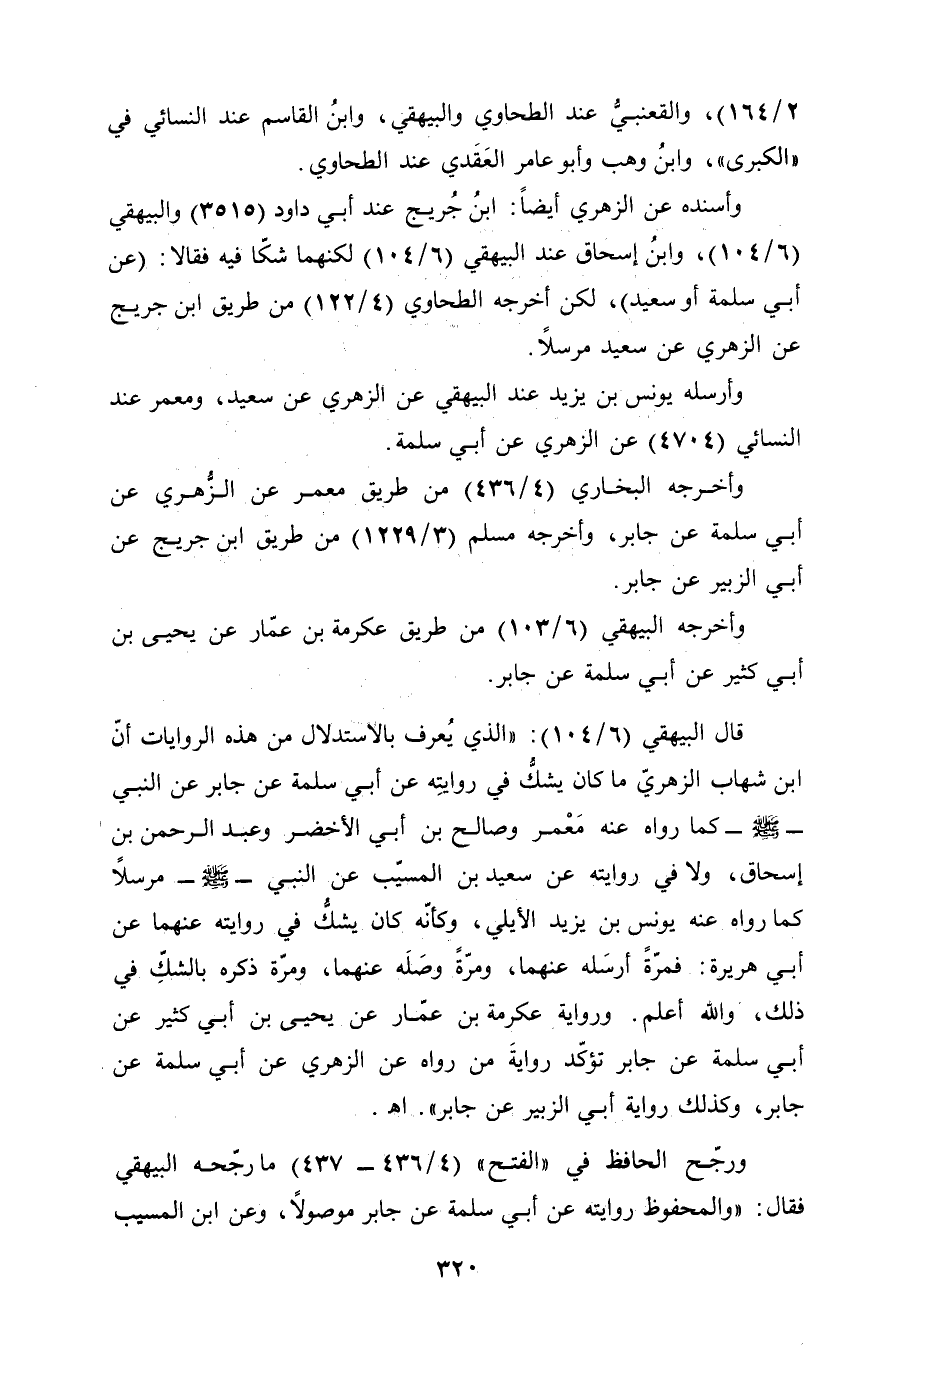 ١٦٤/٢)، والقعنبيُّ عند الطحاوي والبيهقي، وابنُ القاسم عند النسائي في
«الكبرى»، وابنُ وهب وأبو عامر العَقَدي عند الطحاوي.
وأسنده عن الزهري أيضاً: ابنُ جُريج عند أبي داود (٣٥١٥) والبيهقي
(١٠٤/٦)، وابنُ إسحاق عند البيهقي (١٠٤/٦) لكنهما شكّا فيه فقالا: (عن
أبي سلمة أو سعيد)، لكن أخرجه الطحاوي (١٢٢/٤) من طريق ابن جريج
عن الزهري عن سعيد مرسلاً.
وأرسله يونس بن يزيد عند البيهقي عن الزهري عن سعيد، ومعمر عند
النسائي (٤٧٠٤) عن الزهري عن أبي سلمة.
وأخرجه البخاري (٤٣٦/٤) من طريق معمر عن الزُّهري عن
أبي سلمة عن جابر، وأخرجه مسلم (١٢٢٩/٣) من طريق ابن جريج عن
أبي الزبير عن جابر.
وأخرجه البيهقي (١٠٣/٦) من طريق عكرمة بن عمّار عن يحيى بن
أبي كثير عن أبي سلمة عن جابر.
قال البيهقي (١٠٤/٦): «الذي يُعرف بالاستدلال من هذه الروايات أنّ
ابن شهاب الزهريّ ما كان يشكُّ في روايتِه عن أبي سلمة عن جابر عن النبي
ـ ﷺ ـ كما رواه عنه مَعْمر وصالح بن أبي الأخضر وعبد الرحمن بن
إسحاق، ولا في روايته عن سعيد بن المسيّب عن النبي ـ ﷺ ـ مرسلاً
كما رواه عنه يونس بن يزيد الأيلي، وكأنّه كان يشكُّ في روايته عنهما عن
أبي هريرة: فمرّةً أرسَله عنهما، ومرّةً وصَلَه عنهما، ومرّة ذكره بالشكِّ في
ذلك، والله أعلم. ورواية عكرمة بن عمّار عن يحيى بن أبي كثير عن
أبي سلمة عن جابر تؤكّد روايةَ من رواه عن الزهري عن أبي سلمة عن
جابر، وكذلك رواية أبي الزبير عن جابر». اهـ.
ورجّح الحافظ في «الفتح» (٤٣٦/٤ ـ ٤٣٧) ما رجّحه البيهقي
فقال: «والمحفوظ روايته عن أبي سلمة عن جابر موصولاً، وعن ابن المسيب
٣٢٠